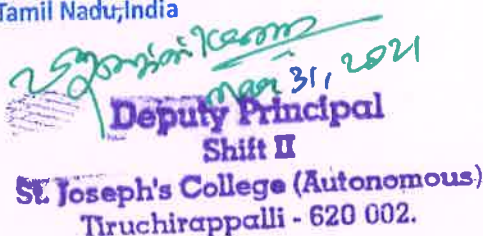 Tamil Nadu,India
31, 2021
Deputy Principal
Shift II
St. Joseph's College (Autonomous)
Tiruchirappalli - 620 002.